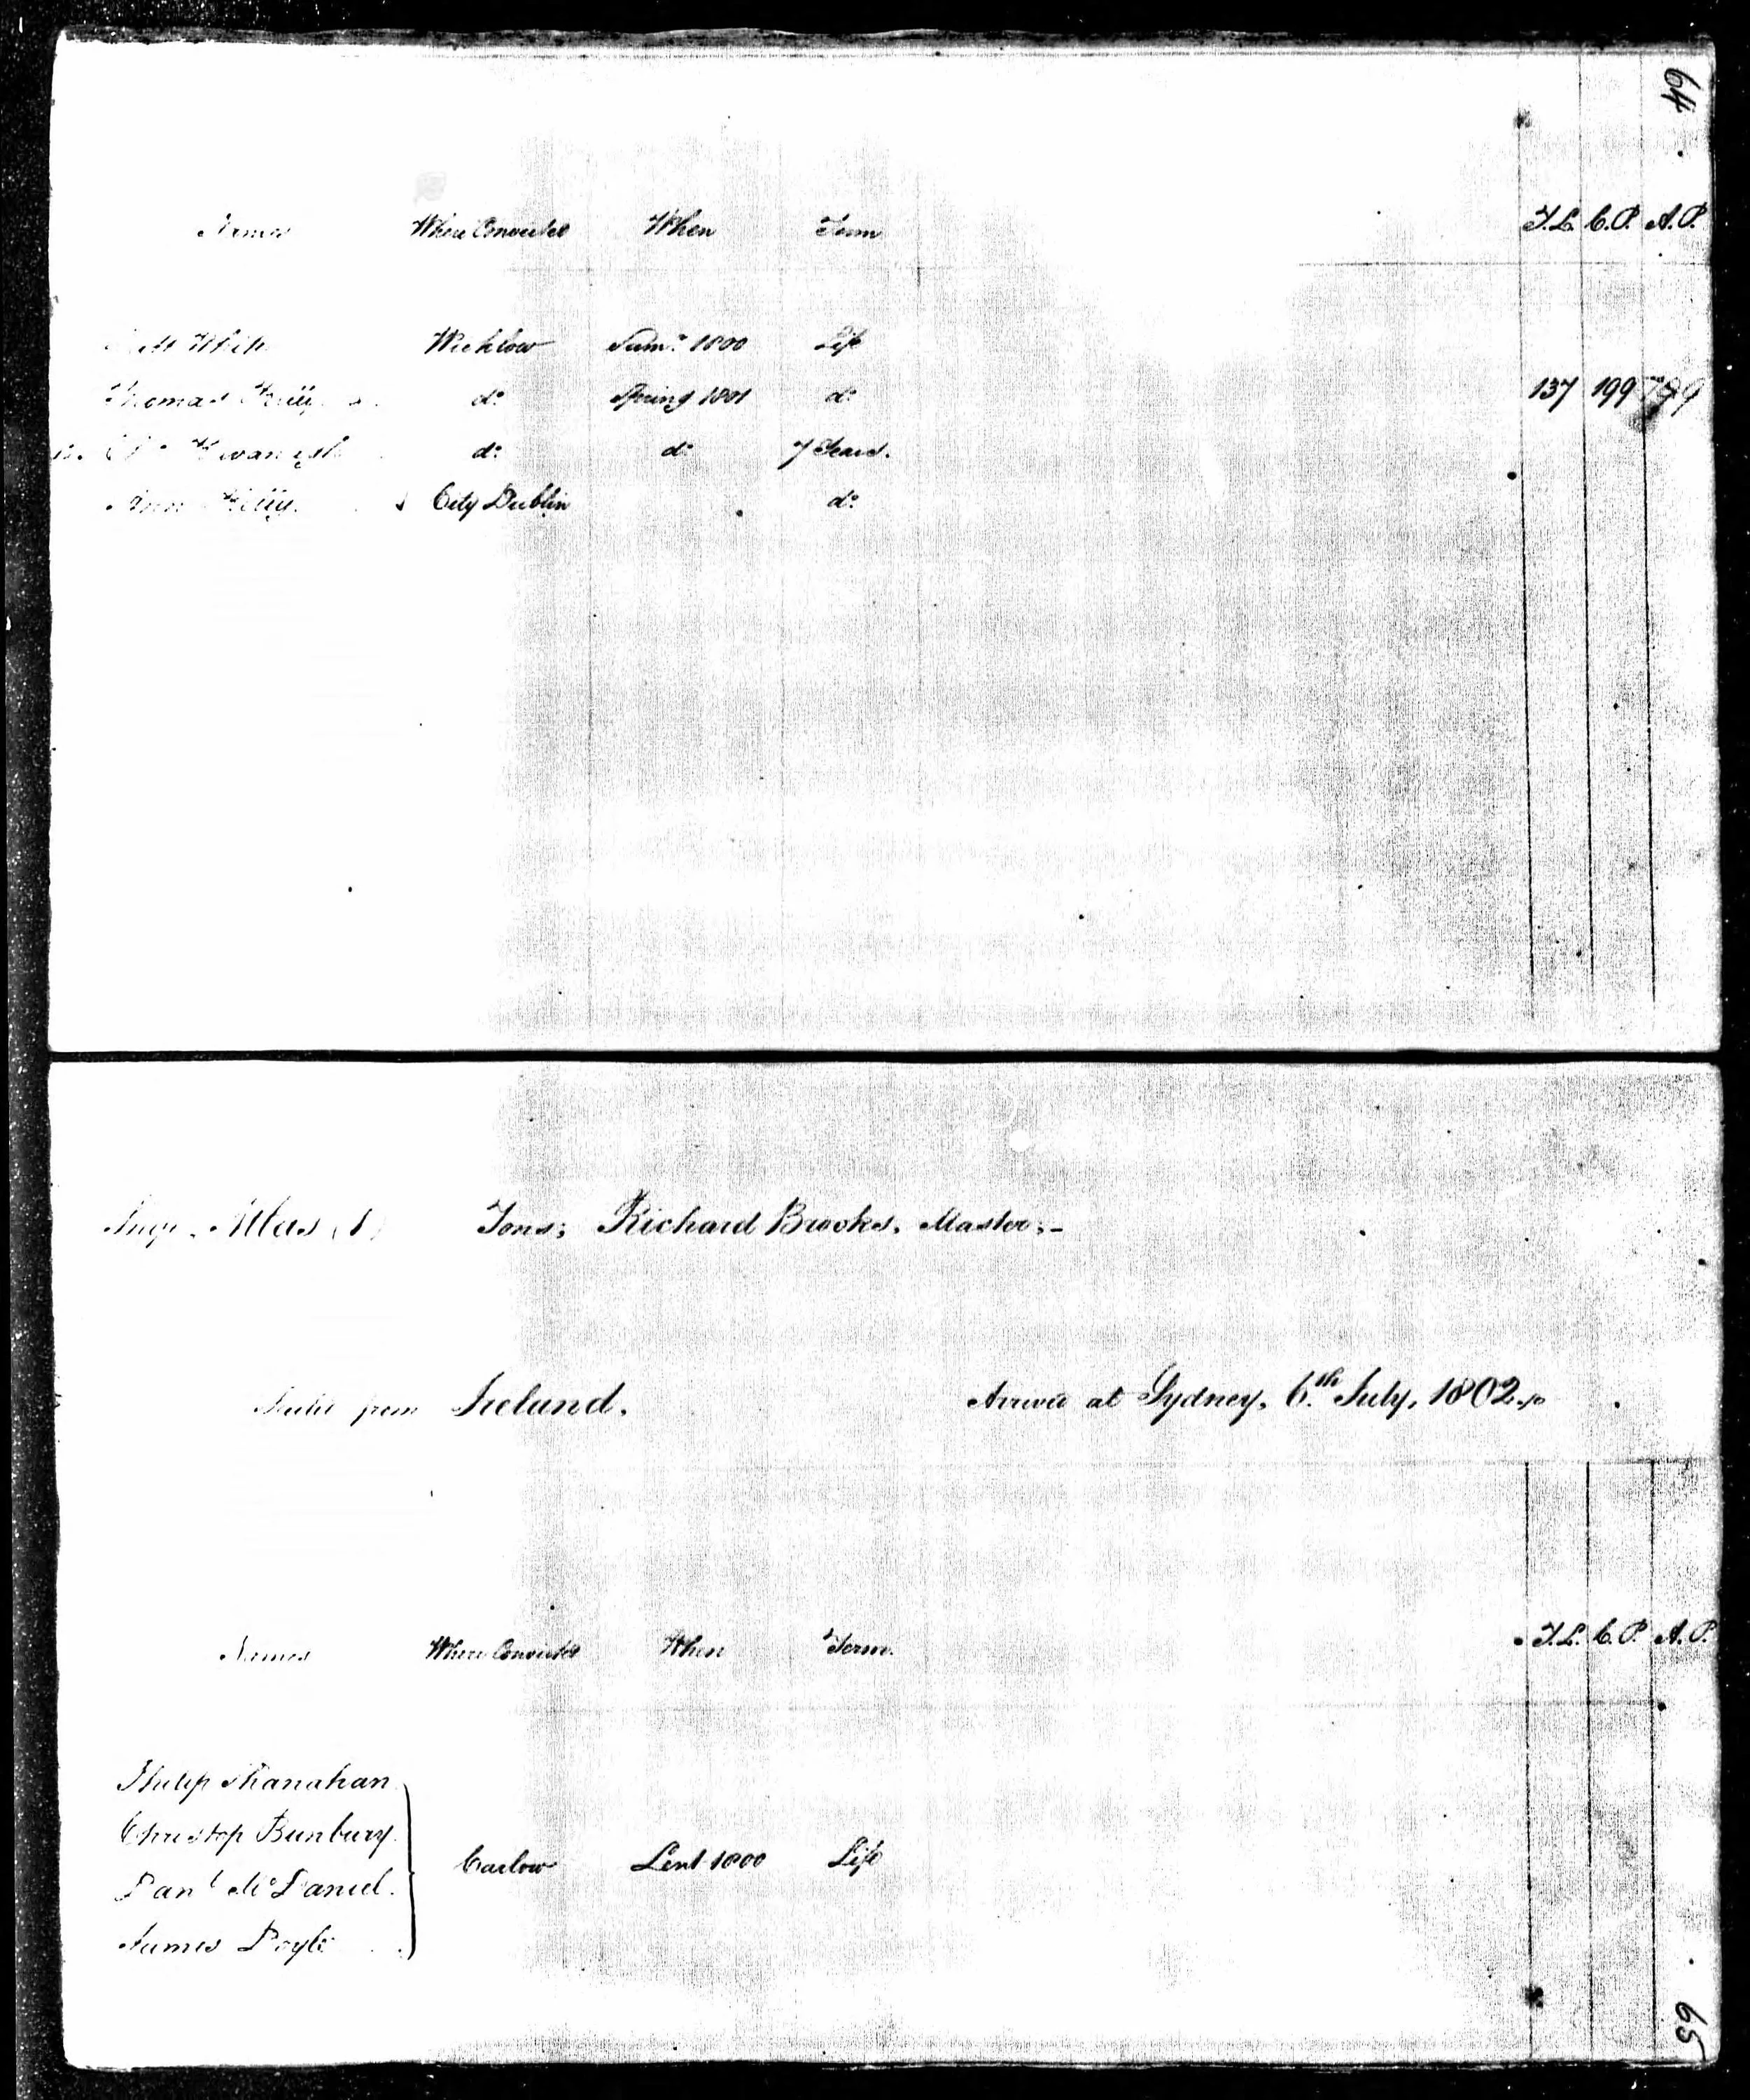 64
Names Where Convicted When Term T.L. C.P. A.P.
White Wicklow Sumr. 1800 Life
Thomas do. Spring 1801 do. 137 199
do. do. 7 Years.
Ann City Dublin do.
Atlas (1) Tons; Richard Brooks, Master;-
from Ireland. Arrived at Sydney, 6.th July, 1802.
Names Where Convicted When Term. T.L. C.P. A.P.
Philip Shanahan
Christop Bunbury.
Danl. McDaniel. Carlow Lent 1800 Life
James Doyle
65